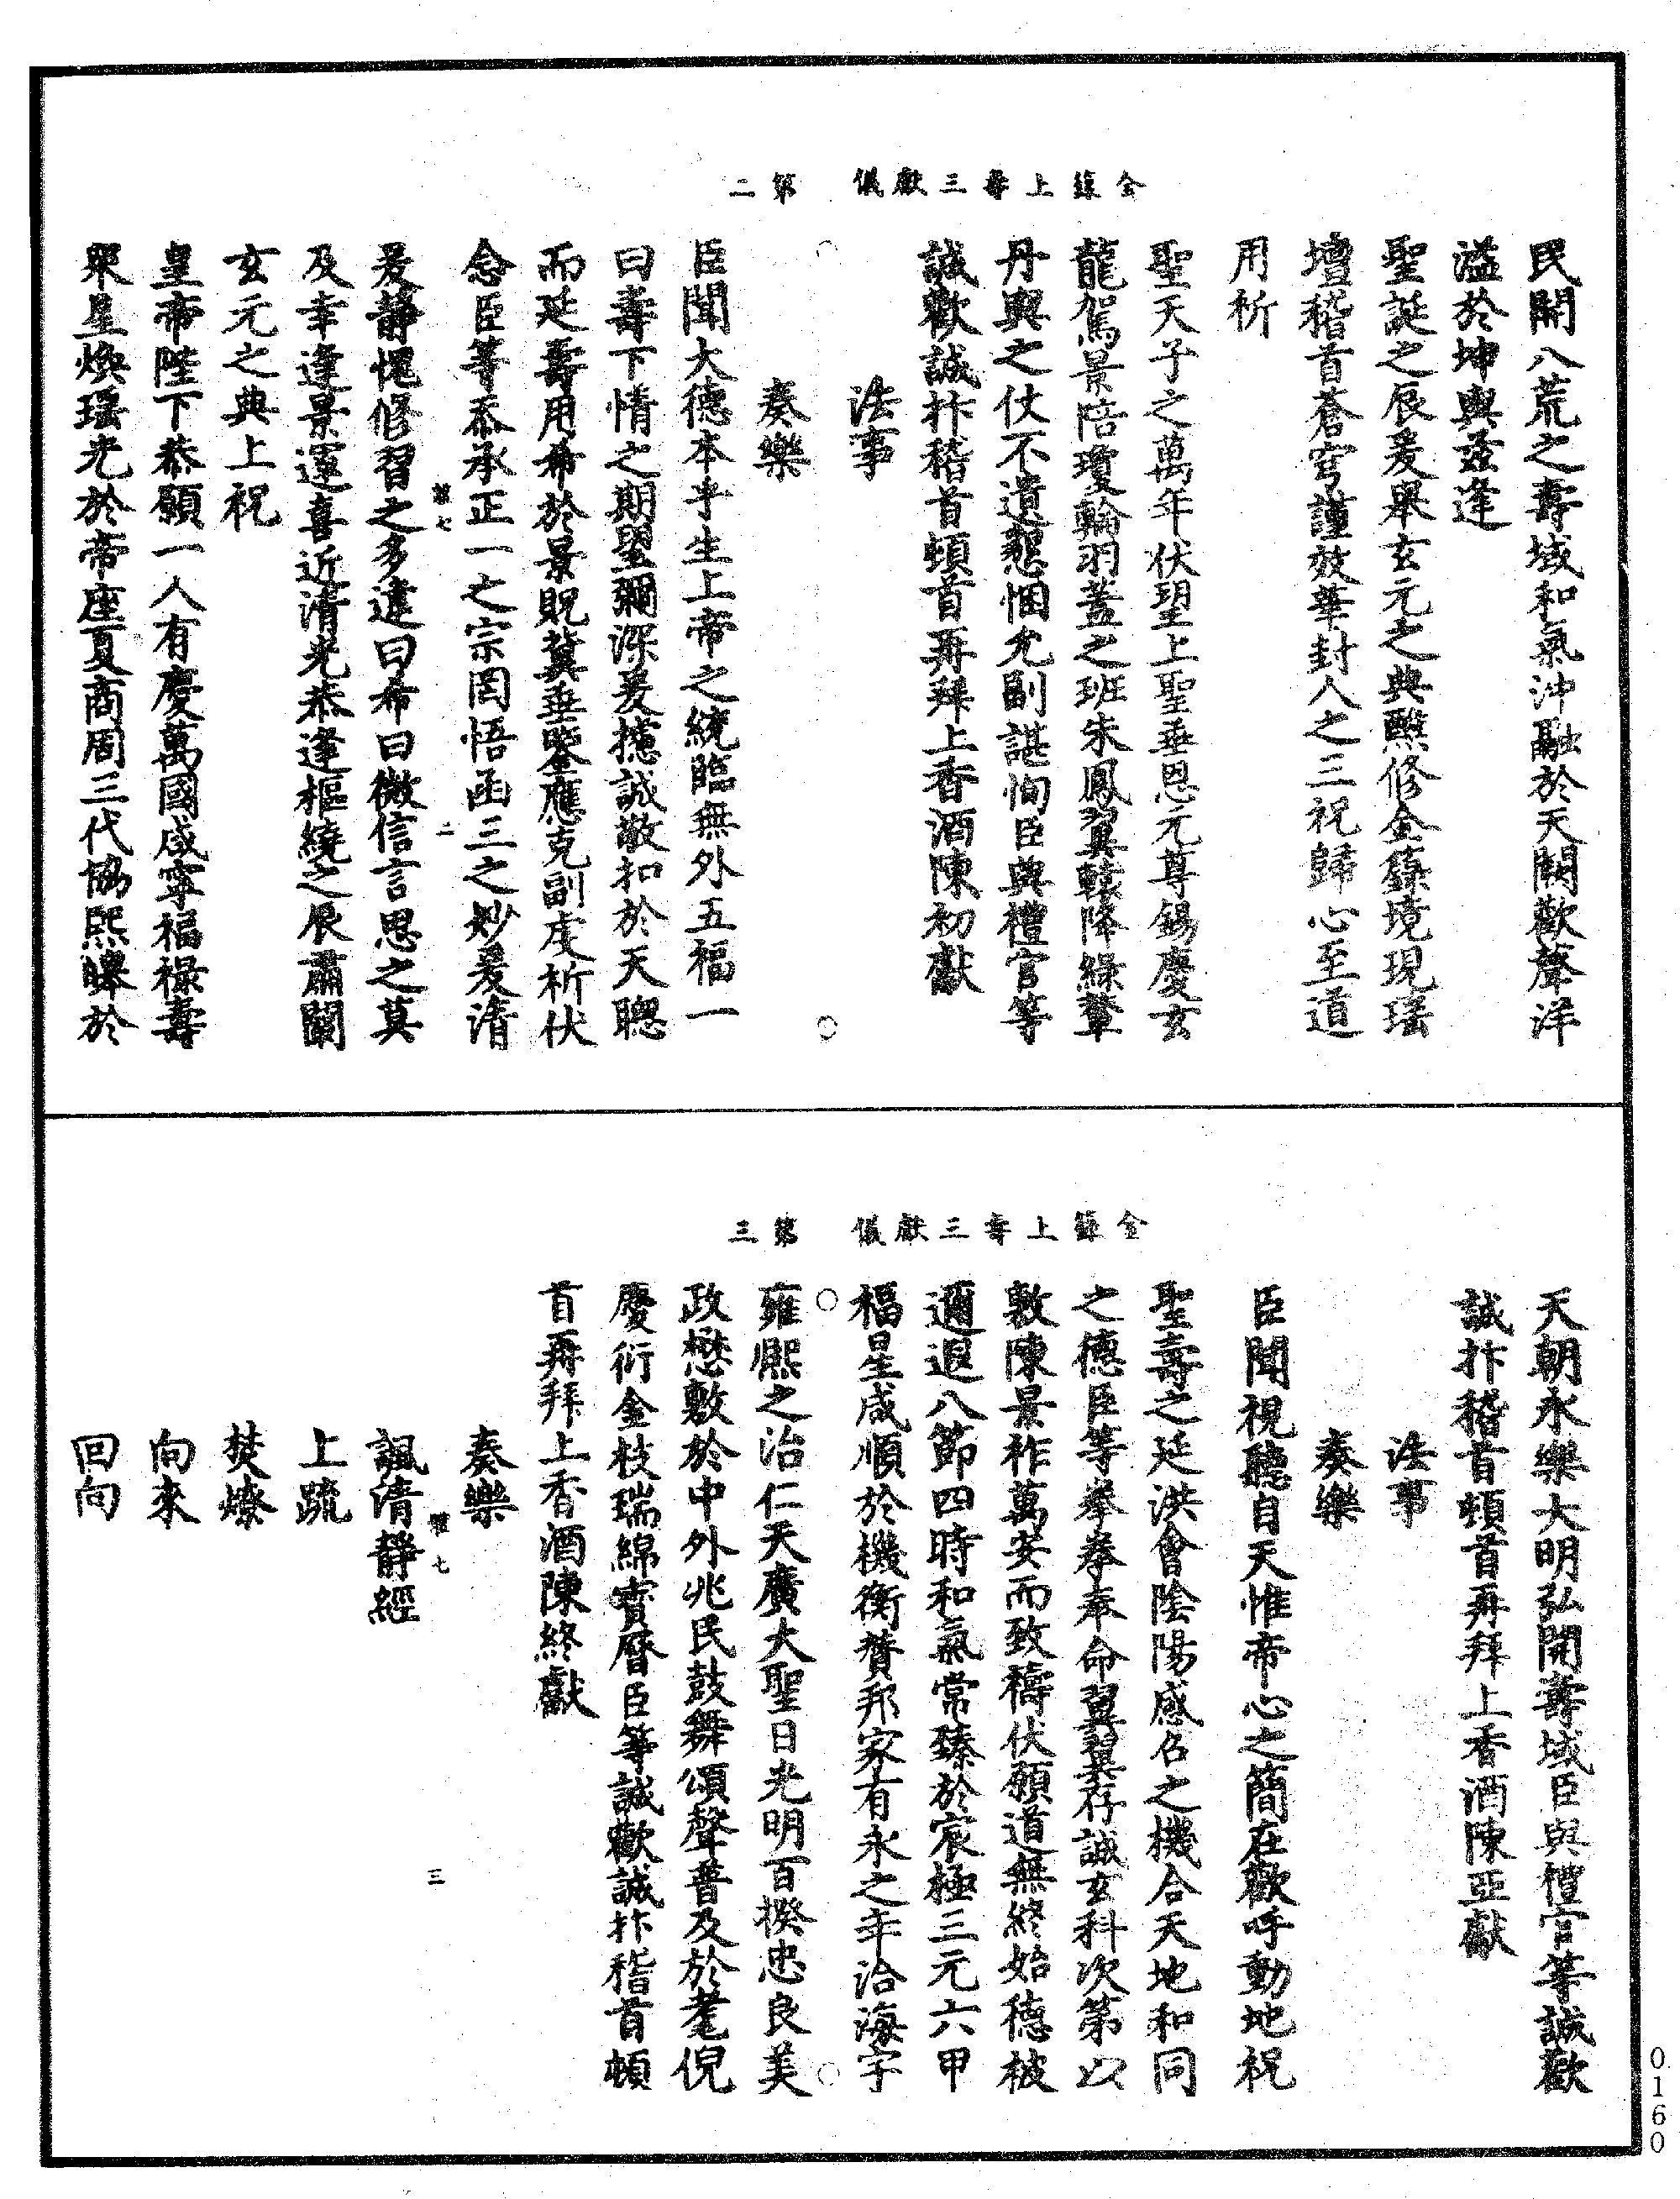 金籙上壽三獻儀　第二
民開八荒之壽域和氣沖融於天闕歡聲洋
溢於坤輿茲逢
聖誕之辰爰舉玄元之典醮修金籙境現瑤
壇稽首蒼穹謹效華封人之三祝歸心至道
用祈
聖天子之萬年伏望上聖垂恩元尊錫慶玄
龍駕景陪瓊輪羽蓋之班朱鳳翼轅降綠輦
丹輿之仗不遺懇悃允副諶恂臣與禮官等
誠歡誠抃稽首頓首再拜上香酒陳初獻
法事
奏樂
臣聞大德本乎生上帝之統臨無外五福一
曰壽下情之期望彌深爰攄誠敬扣於天聰
而延壽用希於景貺冀垂鑒應克副虔祈伏
念臣等忝承正一之宗罔悟函三之妙爰清
爰靜愧修習之多違曰希曰微信言思之莫
及幸逢景運喜近清光恭逢樞繞之辰肅闡
玄元之典上祝
皇帝陛下恭願一人有慶萬國咸寧福祿壽
眾星煥瑤光於帝座夏商周三代協熙皞於
七
二
金籙上壽三獻儀　第三
天朝永樂大明弘開壽域臣與禮官等誠歡
誠抃稽首頓首再拜上香酒陳亞獻
法事
奏樂
臣聞視聽自天惟帝心之簡在歡呼動地祝
聖壽之延洪會陰陽感召之機合天地和同
之德臣等拳拳奉命翼翼存誠玄科次第以
敷陳景祚萬安而致禱伏願道無終始德被
邇遐八節四時和氣常臻於宸極三元六甲
福星咸順於機衡贊邦家有永之年洽海宇
雍熙之治仁天廣大聖日光明百揆忠良美
政懋敷於中外兆民鼓舞頌聲普及於耄倪
慶衍金枝瑞綿寶曆臣等誠歡誠抃稽首頓
首再拜上香酒陳終獻
奏樂
諷清靜經
上疏
焚燎
向來
回向
七
三
0160